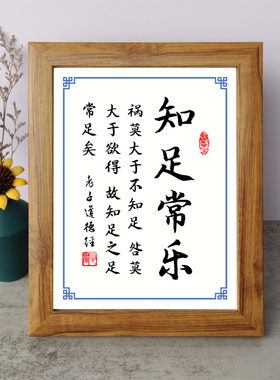 知足常乐
祸莫大于不知足 咎莫
大于欲得 故知足之足
常足矣
老子道德经